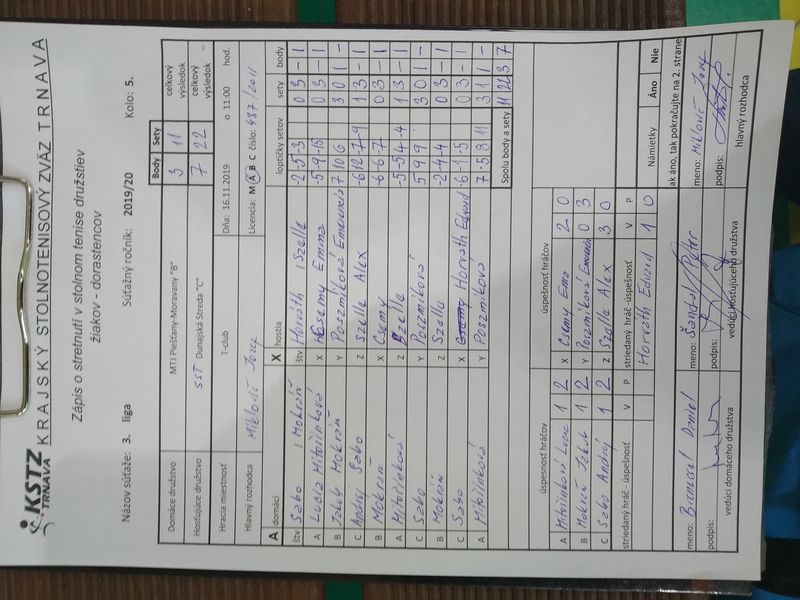 KSTZ TRNAVA KRAJSKÝ STOLNOTENISOVÝ ZVÄZ TRNAVA
Zápis o stretnutí v stolnom tenise družstiev
žiakov - dorastencov
Názov súťaže: 3. liga Súťažný ročník: 2019/20 Kolo: 5.
Body Sety celkový výsledok
Domáce družstvo MTJ Piešťany-Moravany "B" 3 11
celkový výsledok
Hosťujúce družstvo SST Dunajská Streda "C" 7 22
Hracia miestnosť T-club Dňa: 16.11.2019 o 11:00 hod.
Hlavný rozhodca Miklovič Jozef Licencia: M A B C číslo: 437/2011
A domáci X hostia loptičky setov sety body
štv Szbo / Mokráň štv Horváth / Szelle -2-5-3 0 3 - 1
A Lucia Mitošinková X Csemy Emma -5-9-15 0 3 - 1
B Jakub Mokráň Y Poszmiková Emerencia 7 10 6 3 0 1 -
C Andrej Szbo Z Szelle Alex -6 12-7-9 1 3 - 1
B Mokráň X Csemy -6-6-7 0 3 - 1
A Mitošinková Z Szelle -5-5 4-4 1 3 - 1
C Szbo Y Poszmiková 5 9 9 3 0 1 -
B Mokráň Z Szelle -2-4-4 0 3 - 1
C Szbo X Horváth Edvard -6-1-5 0 3 - 1
A Mitošinková Y Poszmiková 7-5 8 11 3 1 1 -
Spolu body a sety 11 22 3 7
úspešnosť hráčov úspešnosť hráčov
A Mitošinková Lucia 1 2 X Csemy Ema 2 0
B Mokráň Jakub 1 2 Y Poszmiková Emerencia 0 3
C Szbo Andrej 1 2 Z Szelle Alex 3 0
striedaný hráč - úspešnosť V P striedaný hráč -úspešnosť V P
Horváth Edvard 1 0
Námietky Áno Nie
ak áno, tak pokračujte na 2. strane
meno: Daniel meno: Šándal Peter meno: Miklovič Jozef
podpis: podpis: podpis:
vedúci domáceho družstva vedúci hosťujúceho družstva hlavný rozhodca